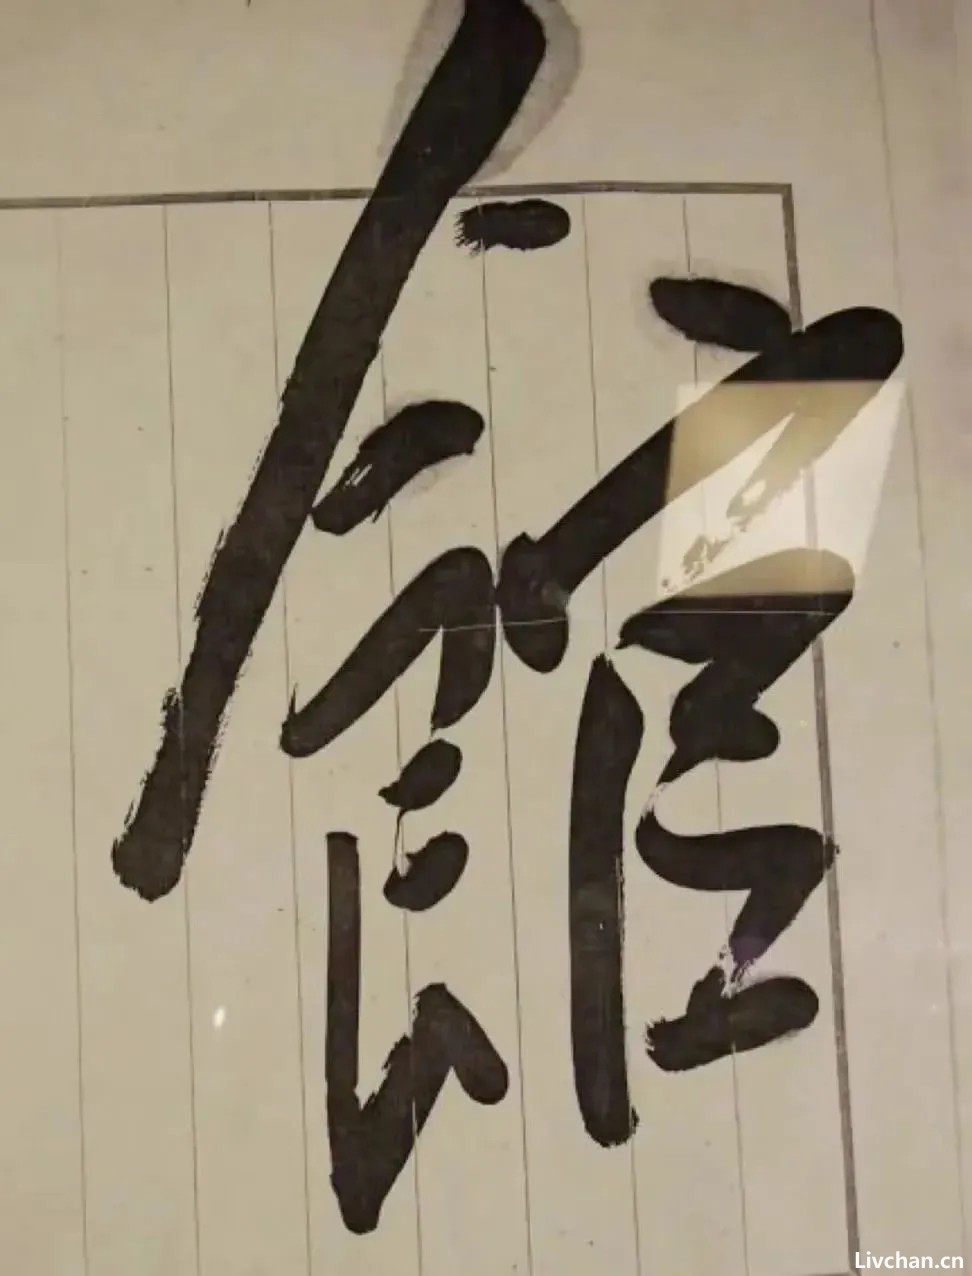 館
Livchan.cn